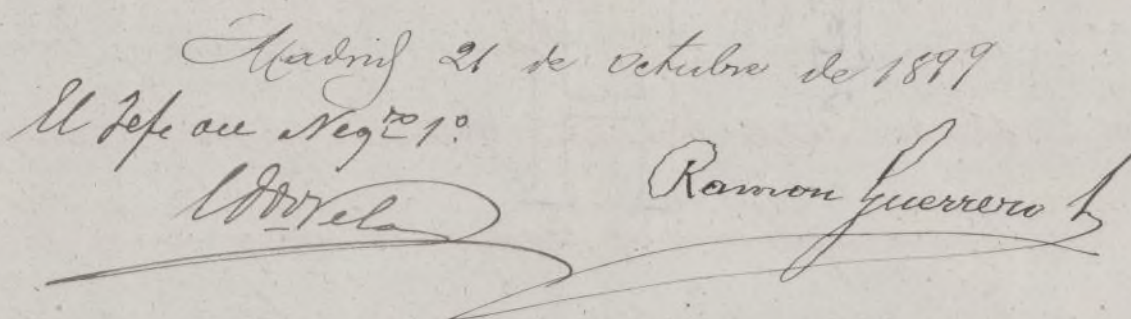 Madrid 21 de Octubre de 1899
El Jefe del Neg.do 1º
Vela
Ramon Guerrero